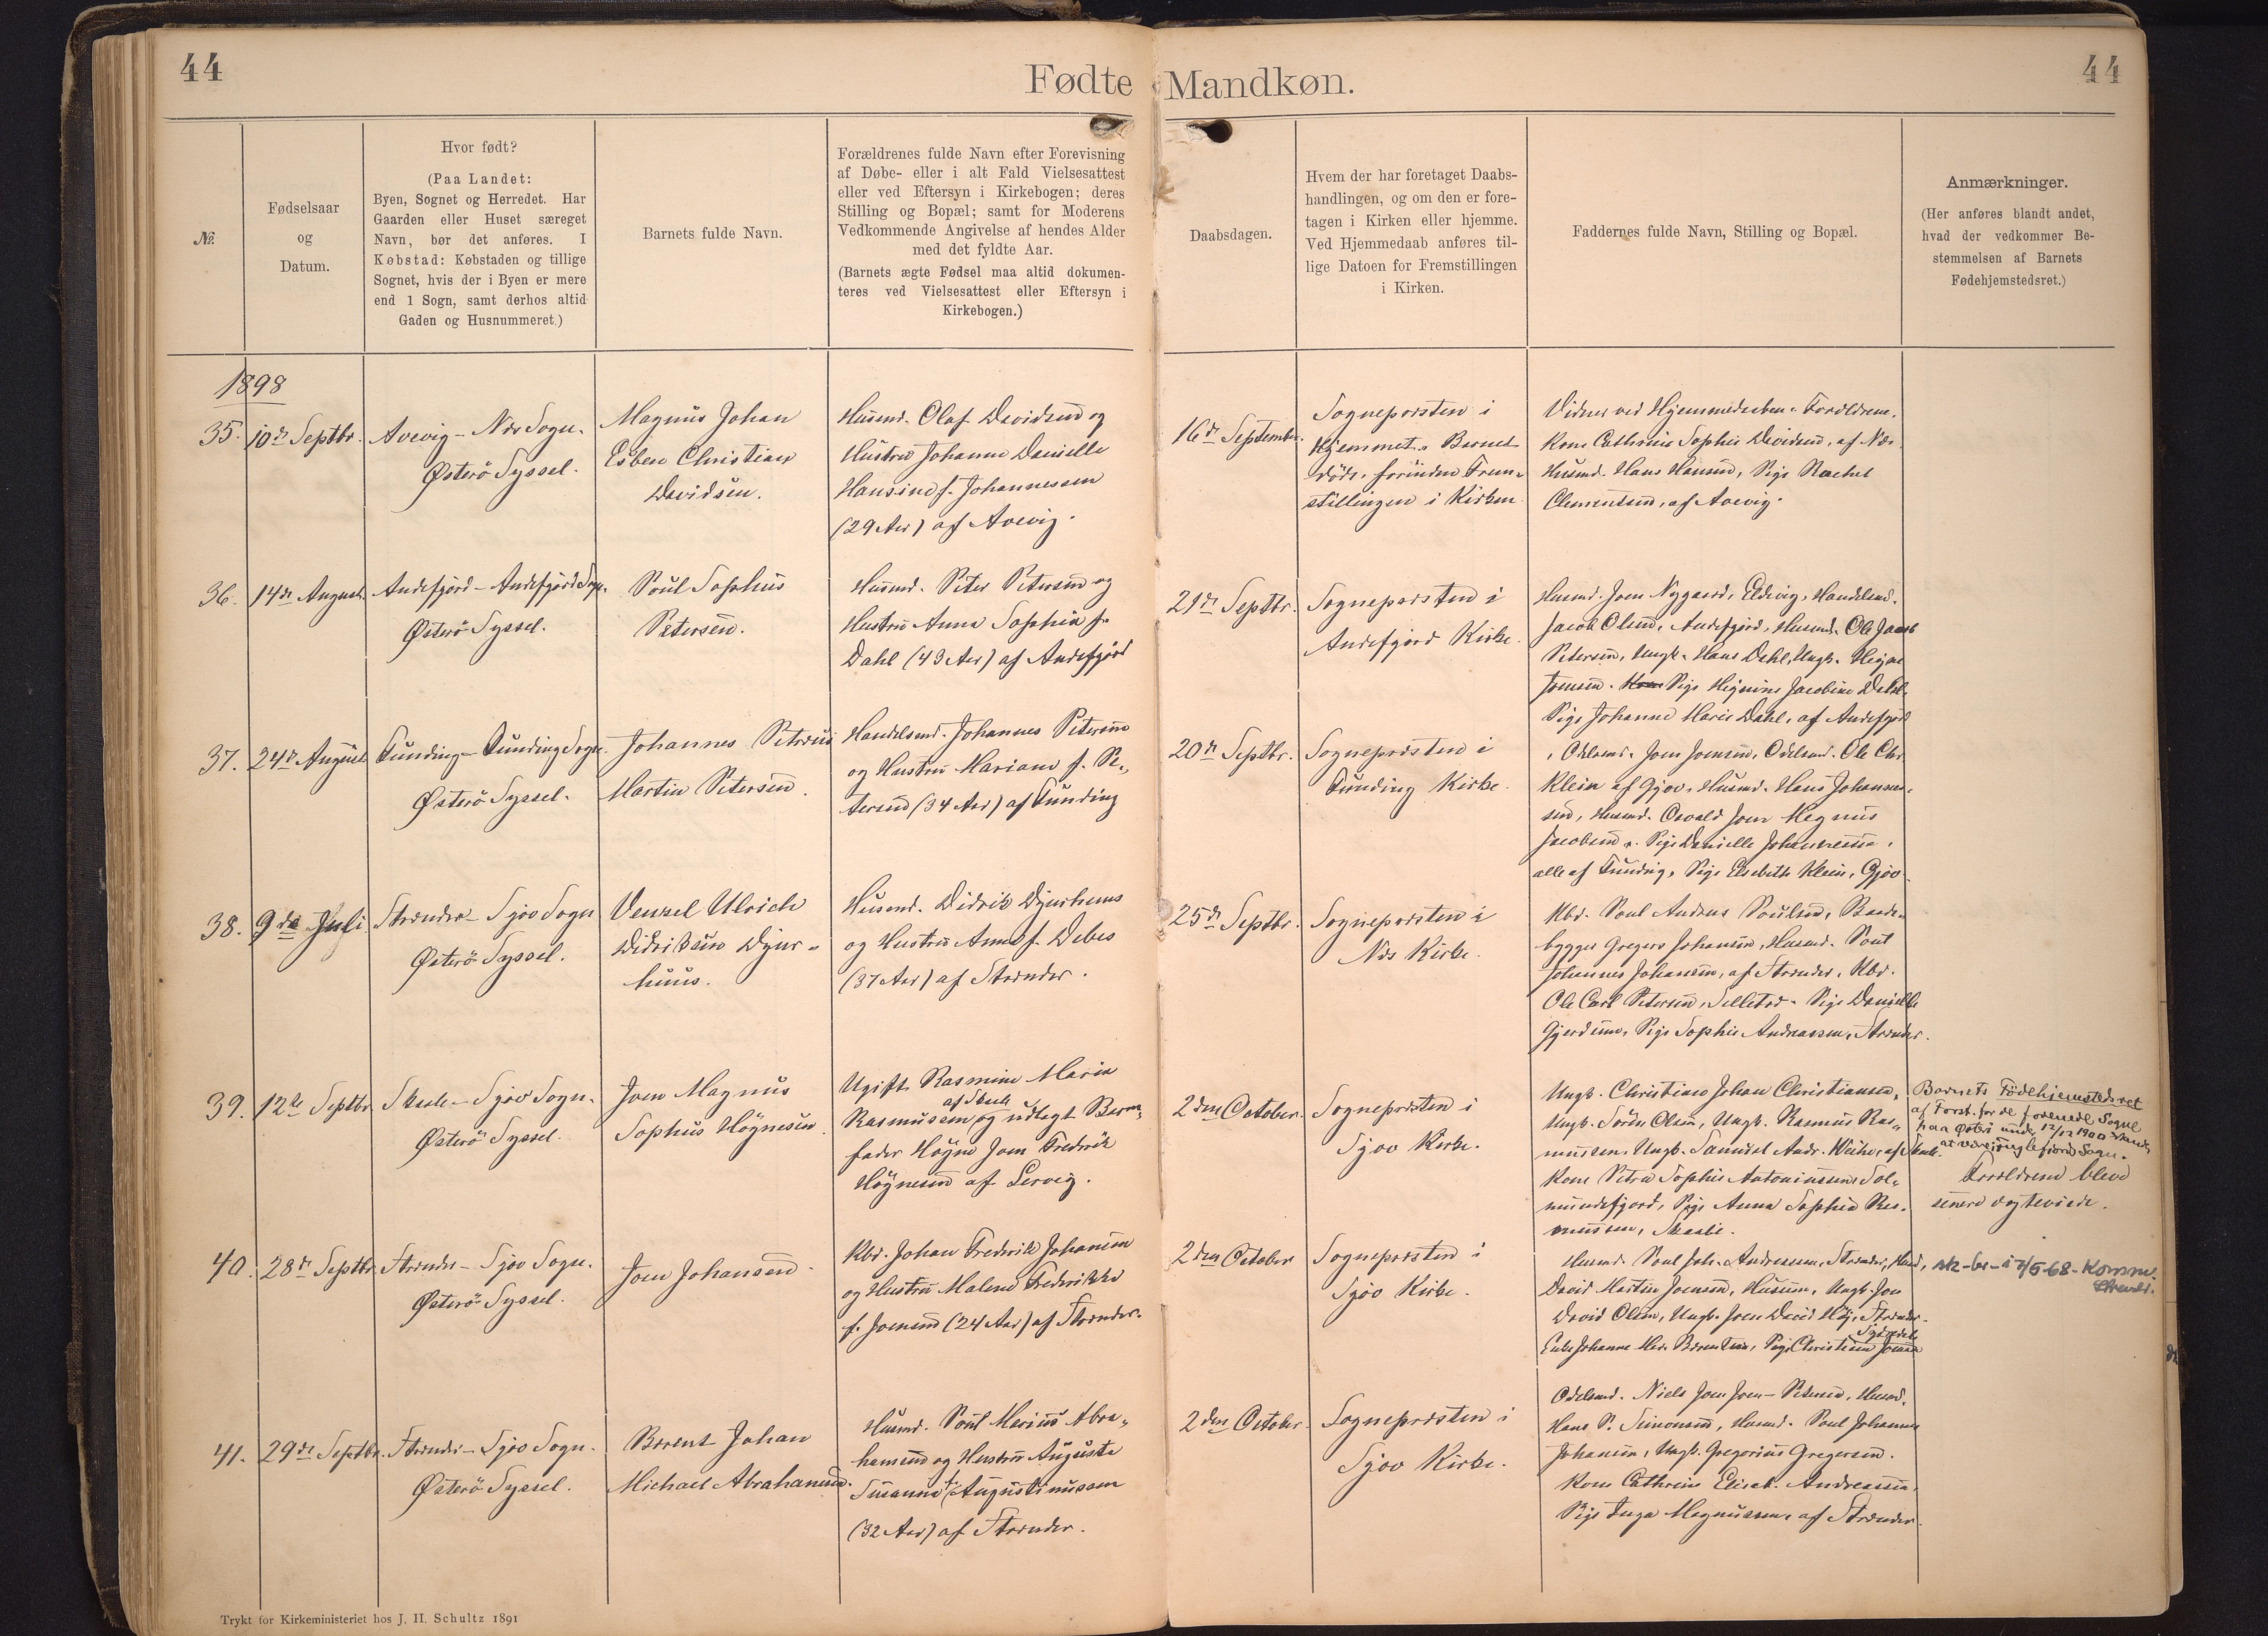 44
Fødte Mandkøn.
44
№.
Fødselsaar
og
Datum.
Hvor født?
(Paa Landet:
Byen, Sognet og Herredet. Har
Gaarden eller Huset særeget
Navn, bør det anføres. I
Købstad: Købstaden og tillige
Sognet, hvis der i Byen er mere
end 1 Sogn, samt derhos altid
Gaden og Husnummeret.)
Barnets fulde Navn.
Forældrenes fulde Navn efter Forevisning
af Døbe- eller i alt Fald Vielsesattest
eller ved Eftersyn i Kirkebogen; deres
Stilling og Bopæl; samt for Moderens
Vedkommende Angivelse af hendes Alder
med det fyldte Aar.
(Barnets ægte Fødsel maa altid dokumen-
teres ved Vielsesattest eller Eftersyn i
Kirkebogen.)
Daabsdagen.
Hvem der har foretaget Daabs-
handlingen, og om den er fore-
tagen i Kirken eller hjemme.
Ved Hjemmedaab anføres til-
lige Datoen for Fremstillingen
i Kirken.
Faddernes fulde Navn, Stilling og Bopæl.
Anmærkninger.
(Her anføres blandt andet,
hvad der vedkommer Be-
stemmelsen af Barnets
Fødehjemstedsret.)
1898
35.
10de Septbr.
Avevig - Næs Sogn.
Østerö Syssel.
Magnus Johan
Esben Christian
Davidsen.
Husmd. Olaf Davidsen og
Hustru Johanne Danielle
Hansine f. Johannessen
(29 Aar) af Avevig.
16de September.
Sognepræsten i
Hjemmet. Barnet
døde forinden Frem-
stillingen i Kirken
Vidner ved Hjemmedaaben: Forældrene.
Kone Cathrine Sophie Davidsen, af Næs.
Husmd. Hans Hansen, Pige Rachel
Clementsen, af Avevig.
36.
14de August.
Andefjord - Andefjord Sogn.
Østerö Syssel.
Poul Sophus
Petersen.
Husmd. Peter Petersen og
Hustru Anna Sophia f.
Dahl (43 Aar) af Andefjord
21de Septbr.
Sognepræsten i
Andefjord Kirke.
Husmd. Joen Nygaard, Eldevig, Handelsmd.
Jacob Olsen, Andefjord, Husmd. Ole Jacob
Petersen, Ungk. Hans Dahl, Ungk. Heine
Joensen. Pige Jacobine Dahl.
Pige Johanne Marie Dahl, af Andefjord
37.
24de August
Funding - Funding Sogn.
Østerö Syssel.
Johannes Petrus
Martin Petersen.
Handelsmd. Johannes Petersen
og Hustru Mariane f. Pe-
tersen (34 Aar) af Funding
20de Septbr.
Sognepræsten i
Funding Kirke.
Odelsmd. Joen Joensen, Odelsmd. Ole Chr.
Klein af Gjov. Husmd. Hans Johannes-
sen, Husmd. Osvald Joen Magnus
Jacobsen. Pige Danielle Johannessen,
alle af Funding, Pige Elsebeth Klein, Gjov.
38.
9de Juli
Strænder - Sjov Sogn
Østerö Syssel.
Venzel Ulrich
Didriksen Djur-
huus.
Husmd. Didrik Djurhuus
og Hustru Anna f. Debes
(37 Aar) af Strænder.
25de Septbr.
Sognepræsten i
Næs Kirke.
Kbd. Poul Andreas Poulsen, Baade-
bygger Gregers Johansen, Husmd. Poul
Johannes Johansen, af Strænder, Kbd.
Ole Carl Petersen, Selletræ. Pige Danielle
Gjerdum, Pige Sophie Andreassen, Strænder.
39.
12te Septbr.
Skaale - Sjov Sogn.
Østerö Syssel.
Joen Magnus
Sophus Högnesen.
Ugift Rasmine Maria
af Skaale
Rasmussen og udlagt Barne-
fader Högne Joen Fredrik
Högnesen af Lervig.
2den October.
Sognepræsten i
Sjov Kirke.
Ungk. Christian Johan Christiansen,
Ungk. Sören Olsen, Ungk. Rasmus Ras-
mussen, Ungk. Samuel Andr. Weihe, af Skaale.
Kone Petra Sophie Antoniussen, Sol-
mundefjord, Pige Anna Sophia Ras-
mussen, Skaale.
Barnets Födehjemstedsret
af Forst. for de forenede Sogne
paa Österö under 12/12 1900
at være Fuglefjord Sogn.
Forældrene bleve
senere ægteviede.
40.
28de Septbr.
Strænder - Sjov Sogn.
Østerö Syssel.
Joen Johansen.
Kbd. Johan Frederik Johansen
og Hustru Malene Frederikke
f. Joensen (24 Aar) af Strænder.
2den October
Sognepræsten i
Sjov Kirke.
Husmd. Poul Joh. Andreassen, Strænder,
David Martin Joensen, Husum, Ungk. Joen
David Olsen, Ungk. Joen David Höj, Strænder.
Enke Johanne Mar. Berentsen, Pige Christine Joensen
7/5-68
41.
29de Septbr.
Strænder - Sjov Sogn.
Østerö Syssel.
Berent Johan
Michael Abrahamsen.
Husmd. Poul Marius Abra-
hamsen og Hustru Auguste
Susanne f. Augustinussen
(32 Aar) af Strænder.
2den October.
Sognepræsten i
Sjov Kirke.
Odelsmd. Niels Joen Joen-Petersen, Husmd.
Hans P. Simonsen, Husmd. Poul Johannes
Johansen, Ungk. Gregorius Gregersen.
Kone Cathrine Elisab. Andreassen,
Pige Inga Magnussen, af Strænder.
Trykt for Kirkeministeriet hos J. H. Schultz 1891